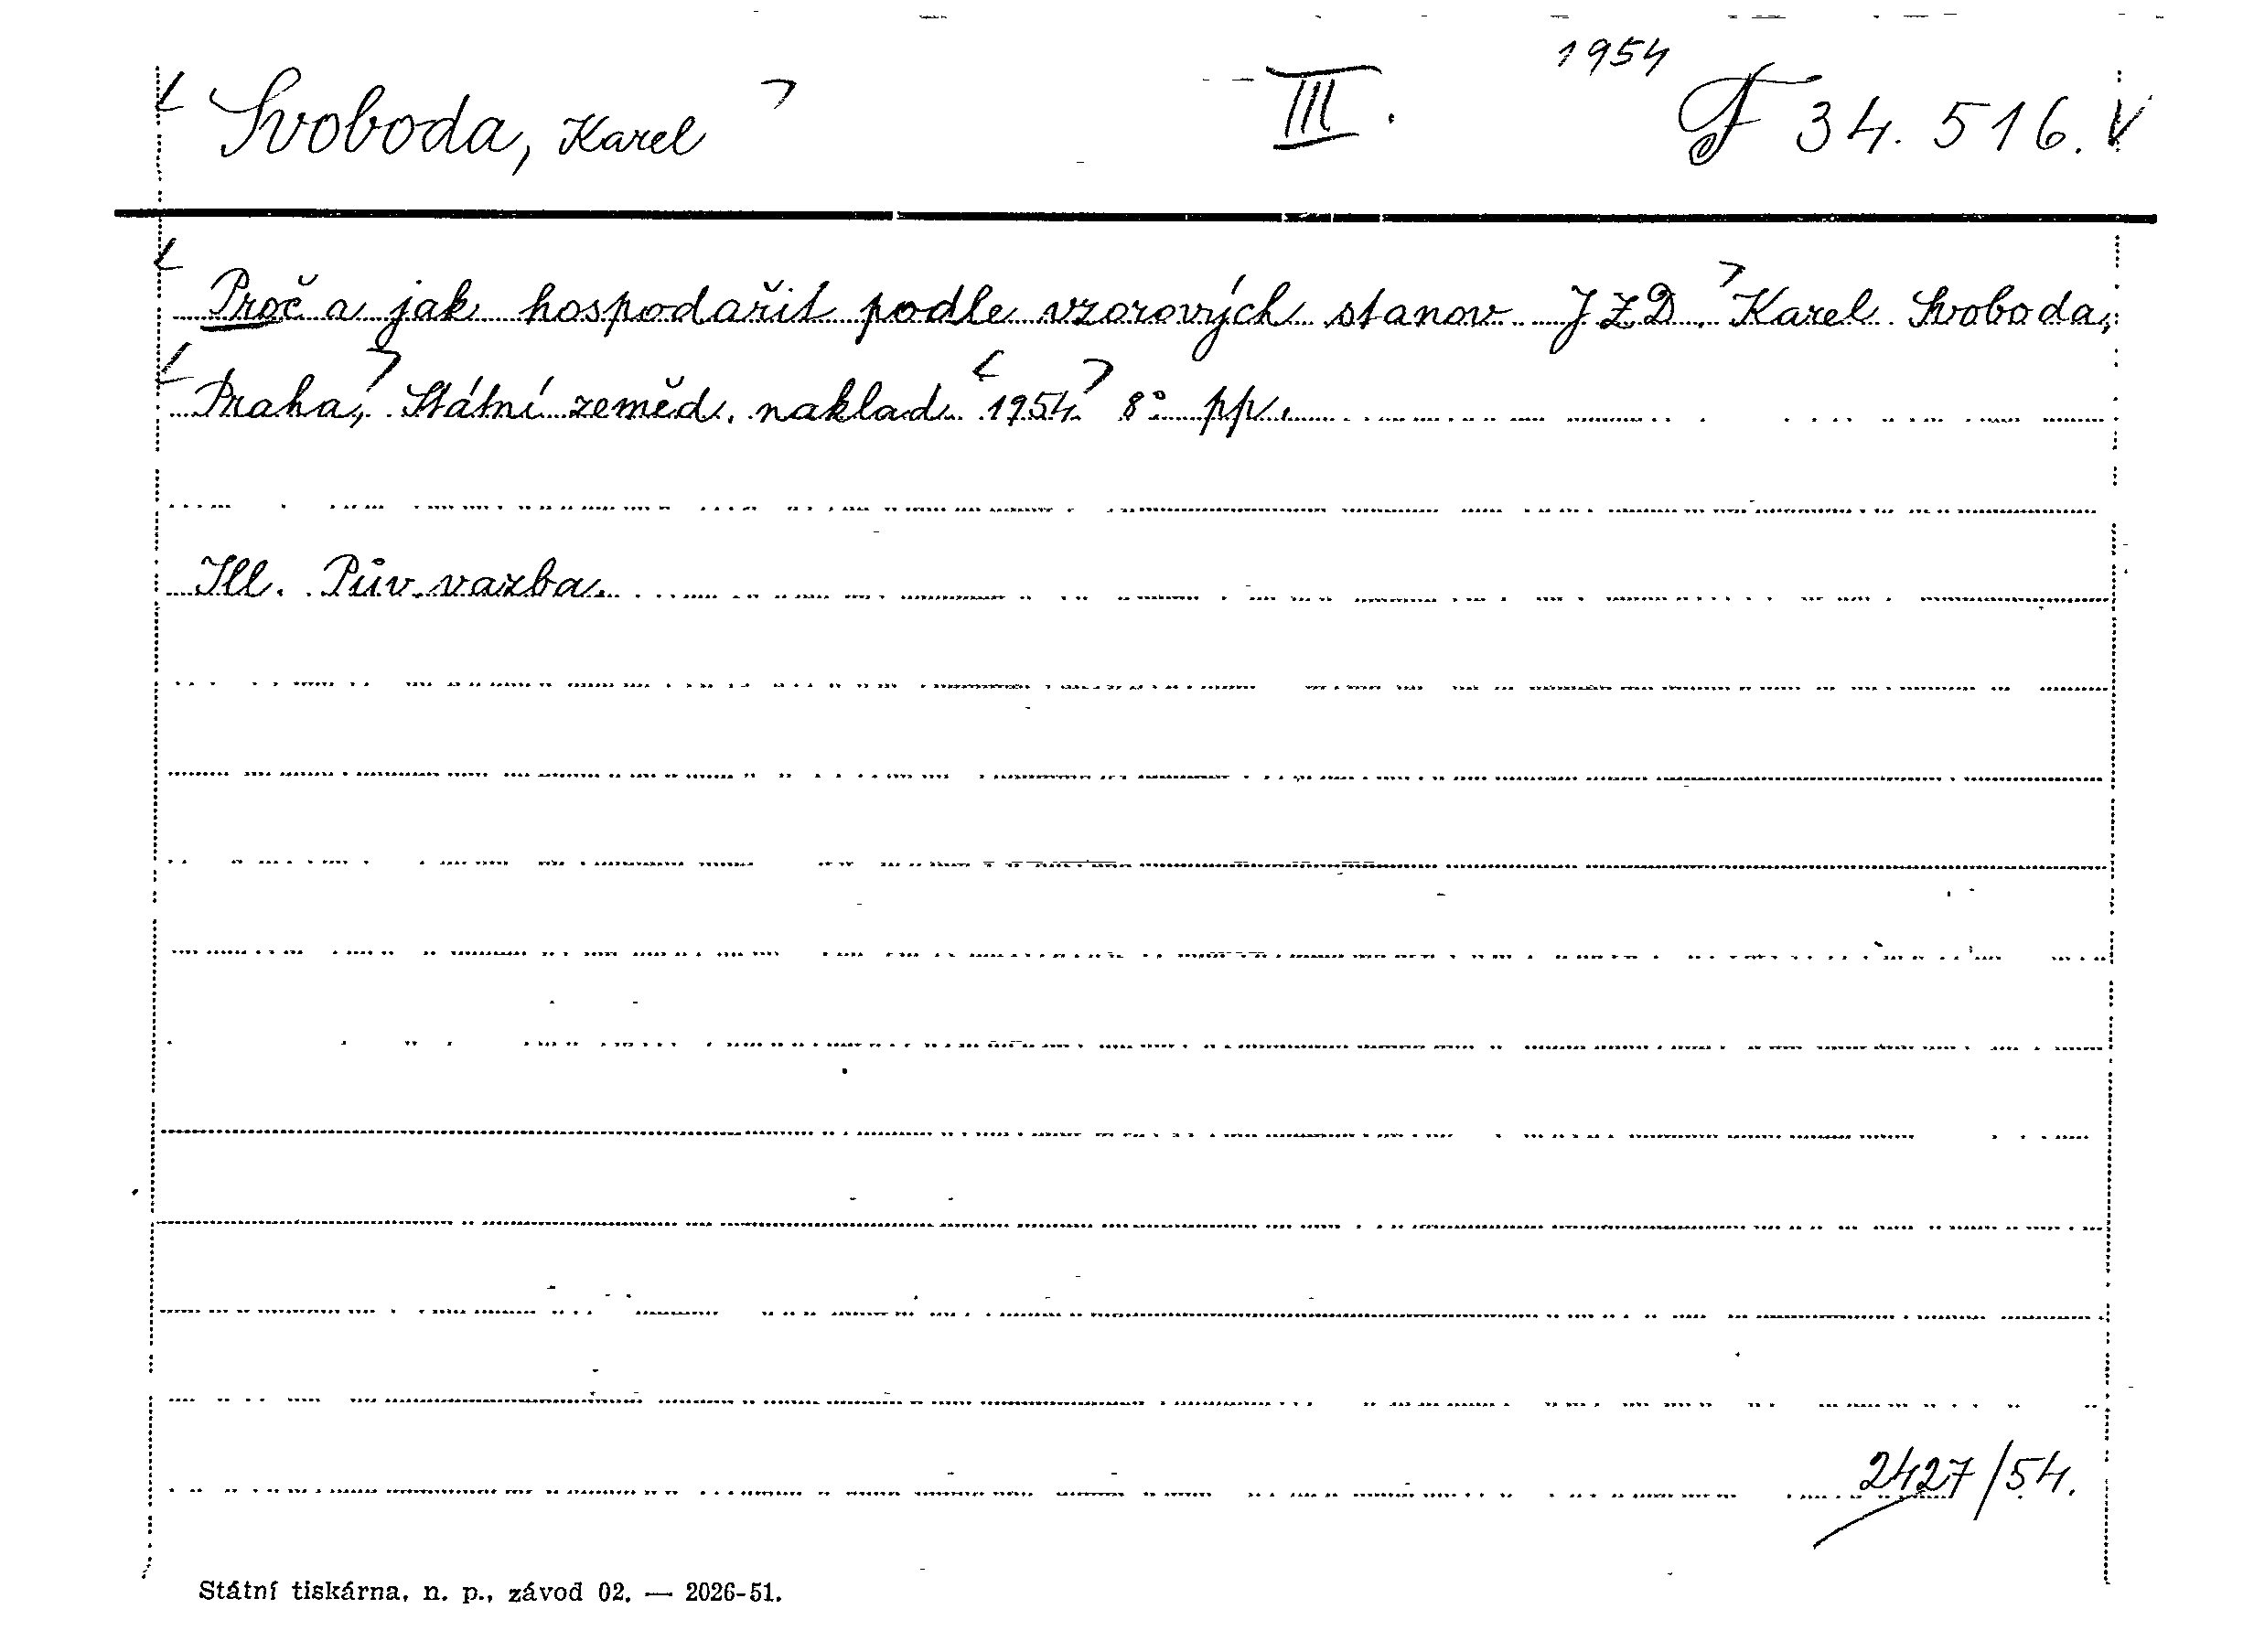 1954
Svoboda, Karel III. F 34.516.V
Proč a jak hospodařit podle vzorových stanov JZD. Karel Svoboda,
Praha, Státní zeměd. naklad. 1954 8° pp.
Ill. Pův. vazba.
2427/54.
Státní tiskárna, n. p., závod 02. — 2026-51.